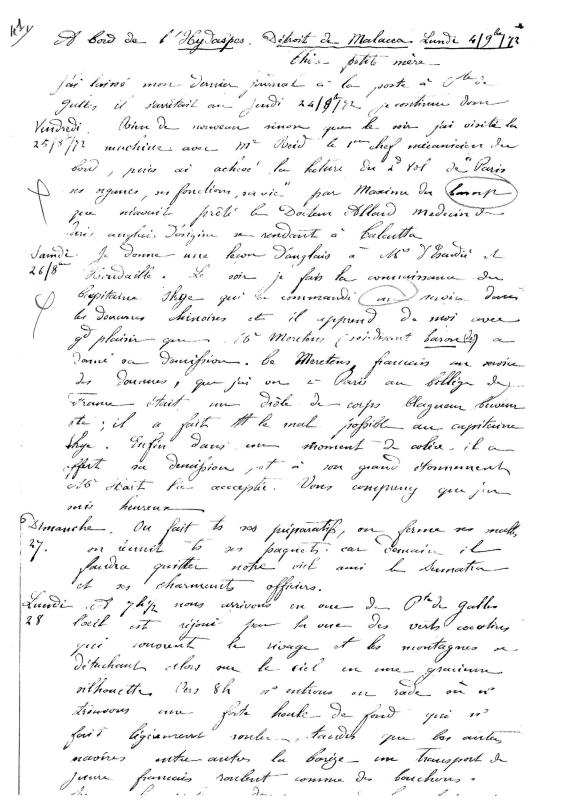 A bord de l'Hydaspes. Détroit de Malacca Lundi 4/9bre/72
Chère petite mère
J'ai laissé mon dernier journal à la poste à Pte de
Galles il s'arrêtait au jeudi 24/8bre/72 je continue donc
Vendredi. Rien de nouveau sinon que le soir j'ai visité la
25/8/72 machine avec Mr Reid le 1er chef mécanicien du
bord, puis ai achevé la lecture du 2d vol de "Paris
ses organes, ses fonctions, sa vie" par Maxime du Camp
que m'avait prêté le Docteur Allard médecin de
Paris anglais d'origine se rendant à Calcutta
Samdi Je donne une leçon d'anglais à Mrs d'Esardié et
26/8bre. Le soir je fais la connaissance du
Capitaine Skye qui a commandé au service dans
les douanes chinoises et il apprend de moi avec
gd plaisir que Mr Meretens (soi disant baron (de) a
donné sa démission. Ce Meretens, français au service
des douanes, que j'ai vu à Paris au Collège de
France était un drôle de corps blagueur buveur
etc; il a fait tt le mal possible au capitaine
Skye. Enfin dans un moment de colère il a
offert sa démission, et à son grand étonnement
elle était acceptée. Vous comprenez que j'en
suis heureux
Dimanche. On fait ts ses préparatifs, on ferme ses malles
27. on réunit ts ses paquets car demain il
faudra quitter notre vieil ami le Sumatra
et ses charmants officiers.
Lundi A 7h1/2 nous arrivons en vue de Pte de Galles
28 l'oeil est réjoui par la vue des verts cocotiers
qui couvrent le rivage et les montagnes se
détachant alors sur le ciel en une gracieuse
silhouette. Vers 8h ns entrons en rade où ns
trouvons une forte houle de fond qui ns
fait légèrement rouler, tandis que les autres
navires entre autres la Corrèze un transport de
guerre français roulent comme des bouchons.